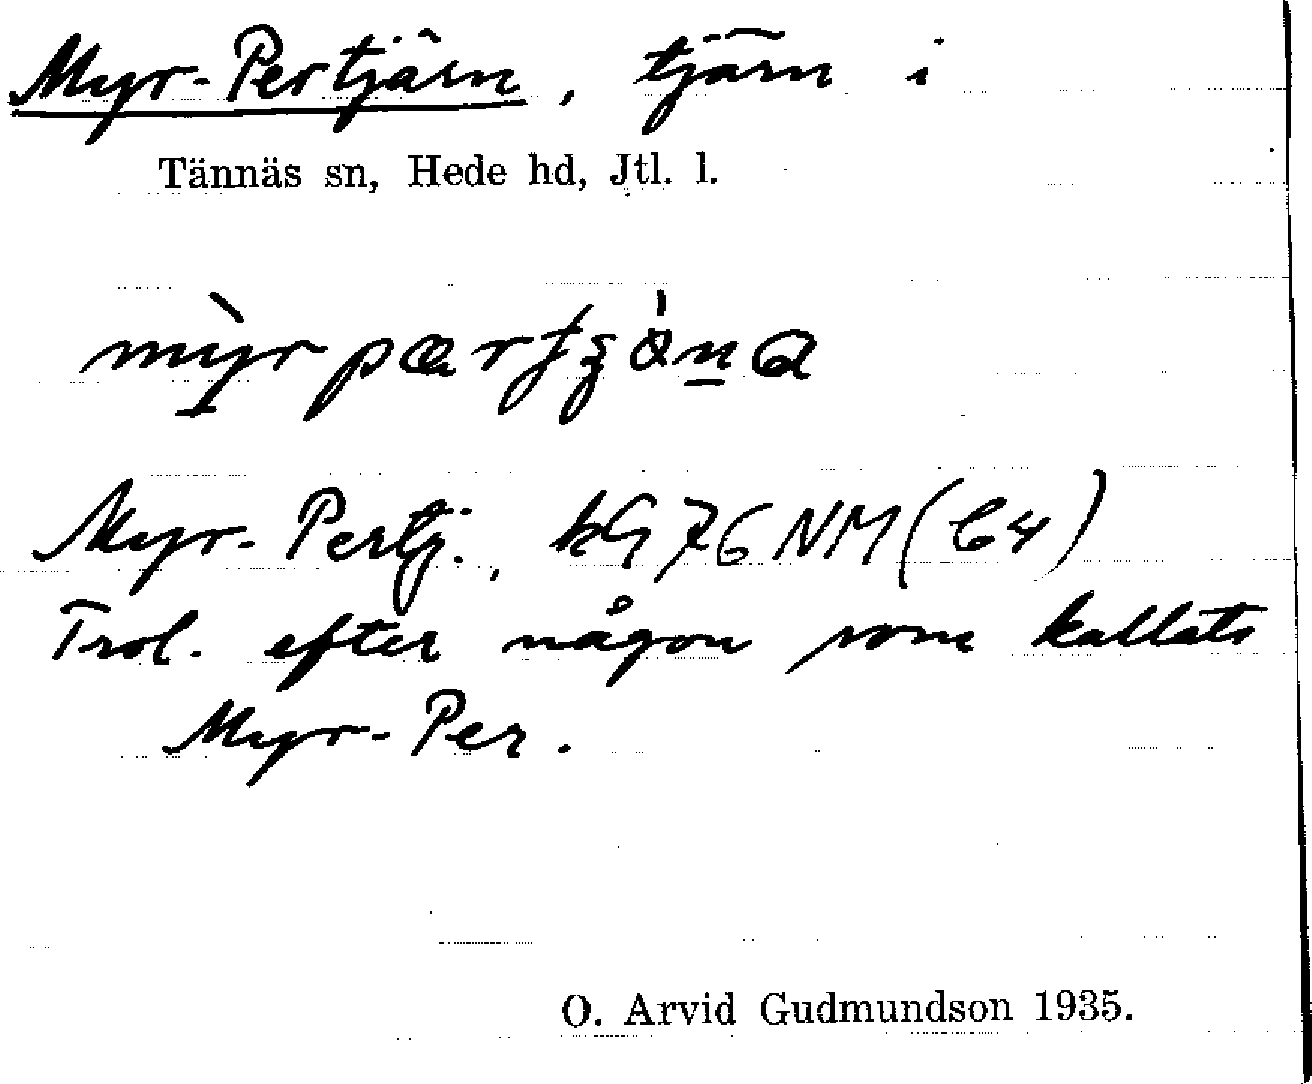 Myr-Pertjärn, tjärn i
Tännäs sn, Hede hd, Jtl. l.
Myr-Pertj., kG 76 NM (C4)
Trol. efter någon som kallats
Myr-Per.
O. Arvid Gudmundson 1935.